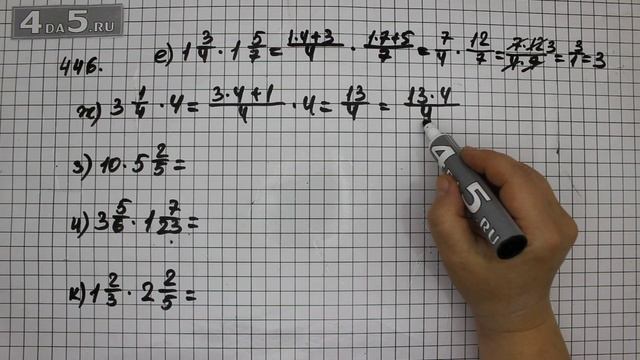 4DA5.RU
446. е) 1 3/4 · 1 5/7 = (1·4+3)/4 · (1·7+5)/7 = 7/4 · 12/7 = (7·12 3)/(4·7) = 3/1 = 3
ж) 3 1/4 · 4 = (3·4+1)/4 · 4 = 13/4 = (13·4)/4
з) 10 · 5 2/5 =
и) 3 5/6 · 1 7/23 =
к) 1 2/3 · 2 2/5 =
4DA5.RU